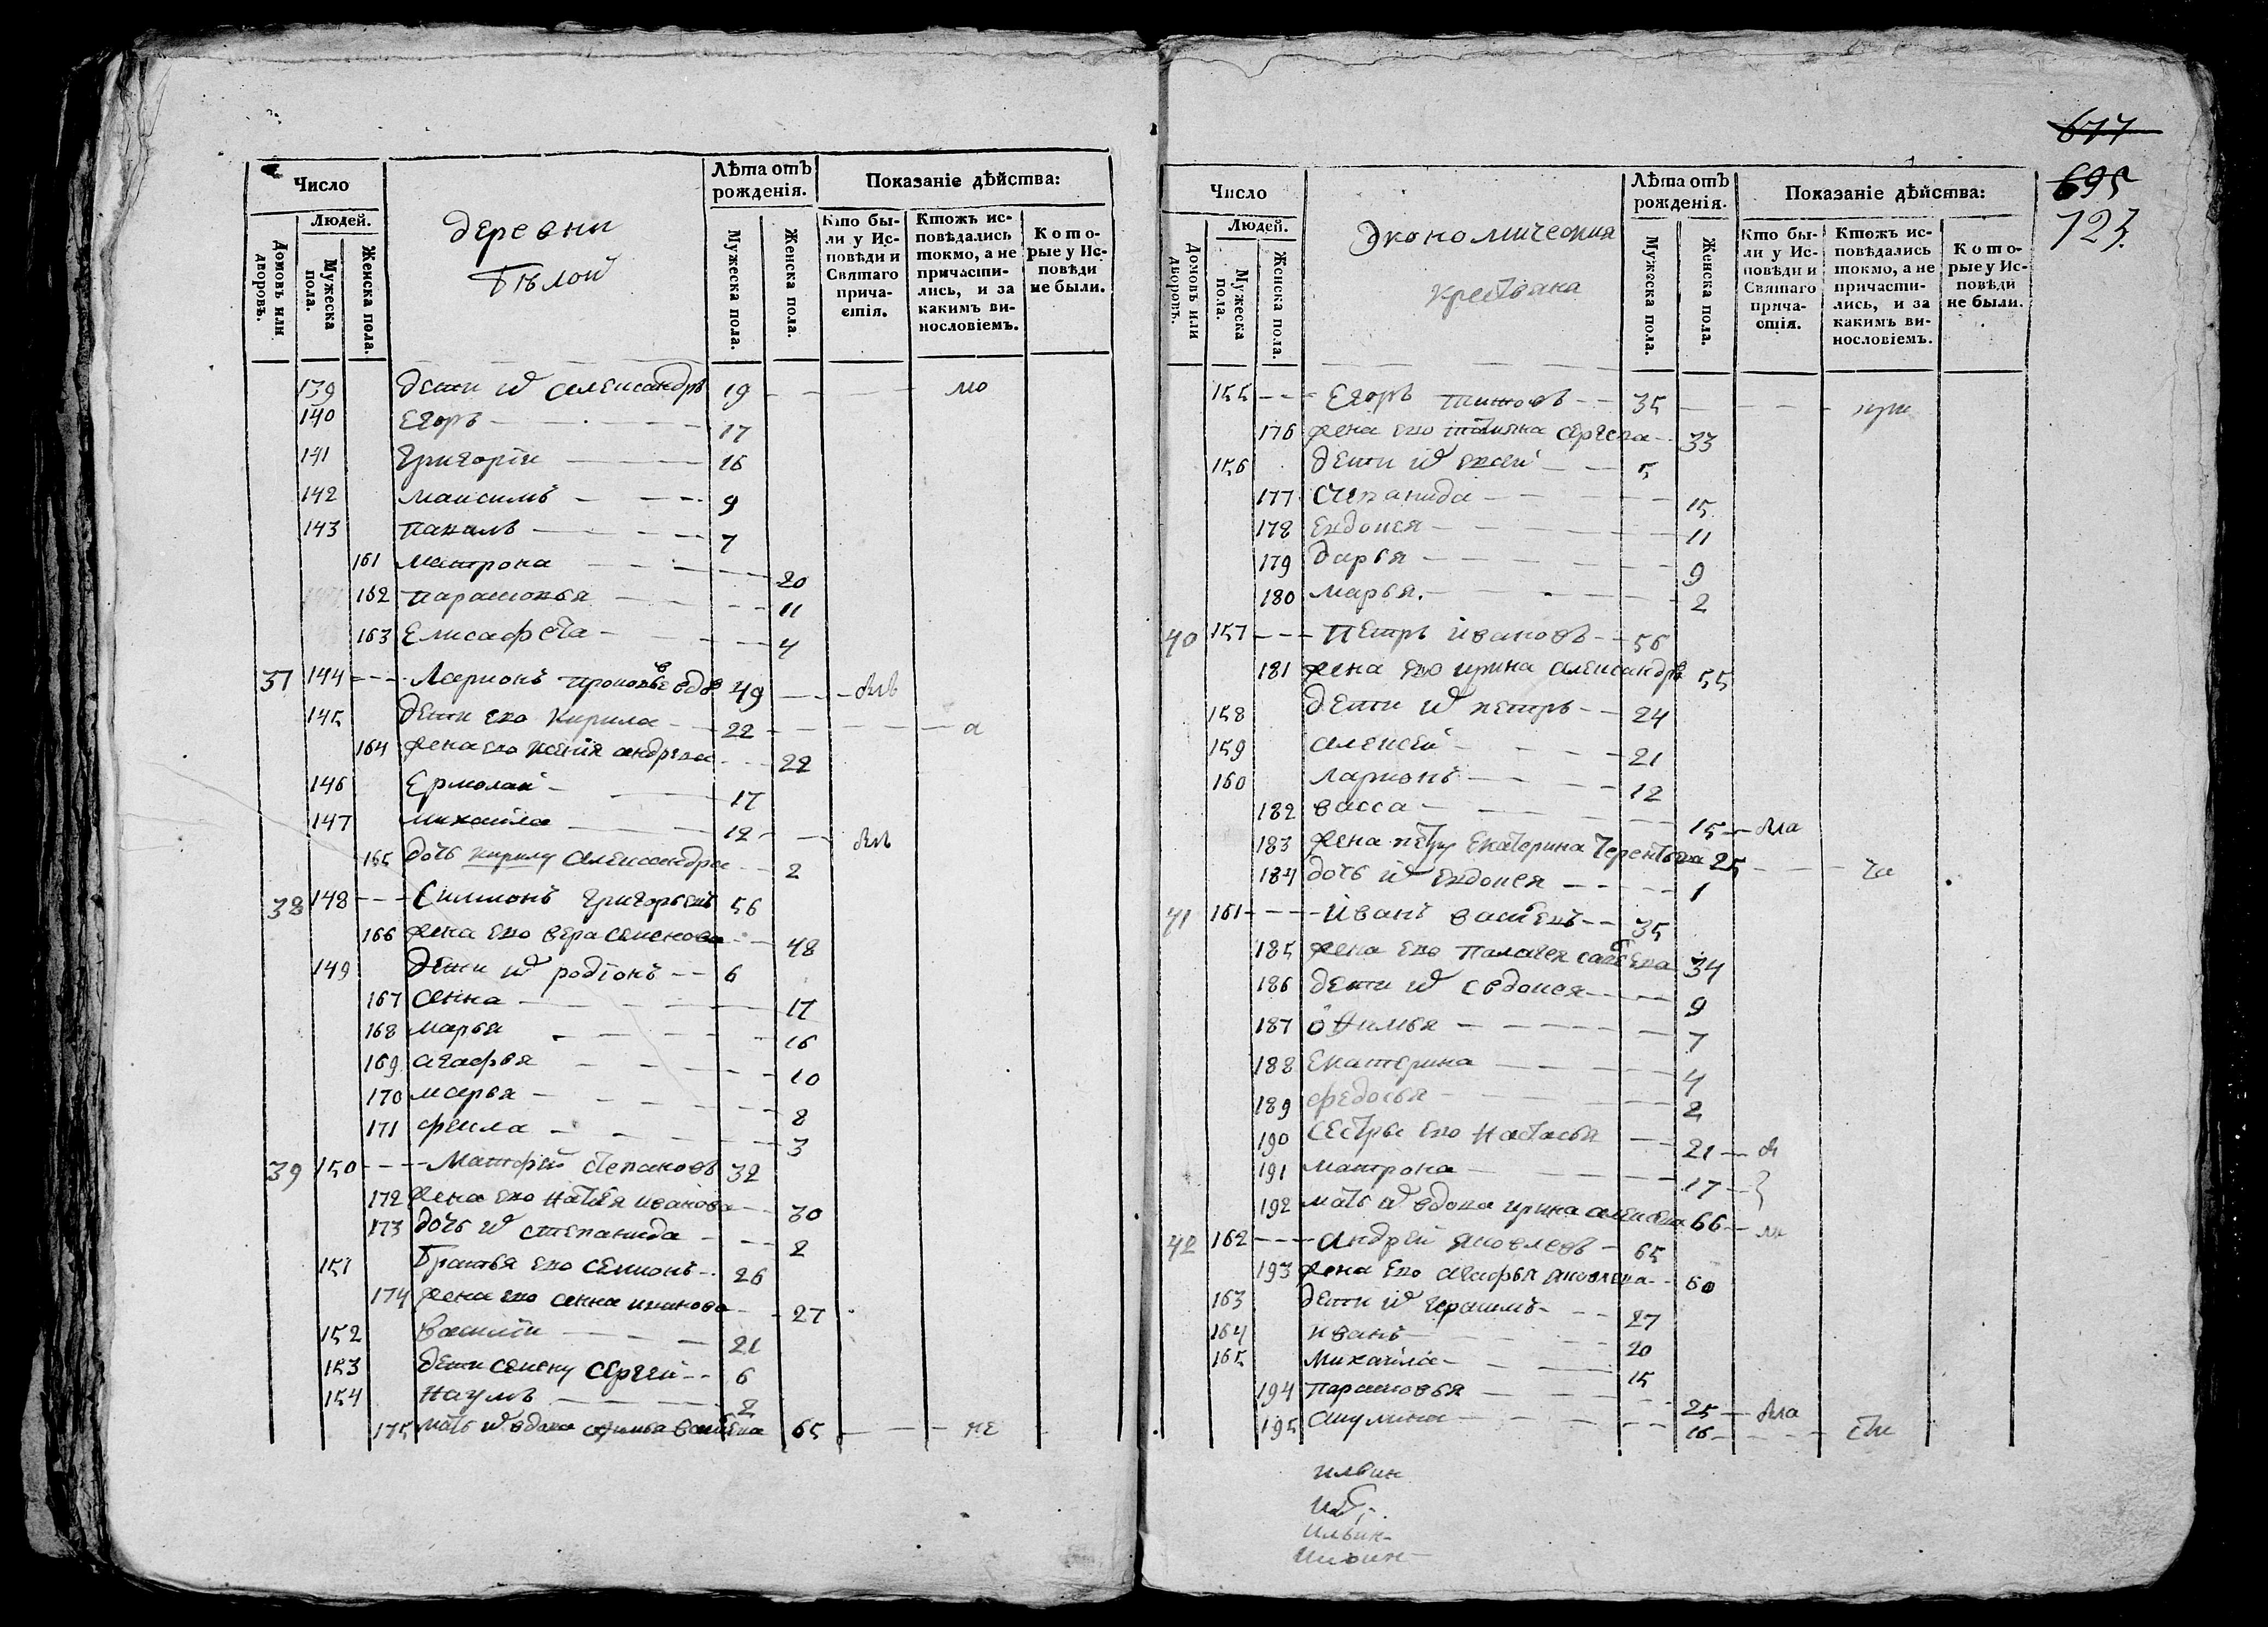 Число
Людей.
Домовъ или дворовъ.
Мужеска пола.
Женска пола.
деревни
Бѣлой
Лѣта отъ рожденія.
Мужеска пола.
Женска пола.
Показаніе дѣйства:
Кто бы-
ли у Ис-
повѣди и
Святаго
прича-
стія.
Ктожъ ис-
повѣдались
токмо, а не
причасти-
лись, и за
какимъ ви-
нословіемъ.
Кото-
рые у Ис-
повѣди
не были.
139 дети ѡ александръ 19 мо
140 Егоръ 17
141 григорiи 16
142 максимъ 9
143 9 7
161 матрона 20
162 парасковья 11
163 Елисафета 4
37 144 Ларионъ вдо 49
145 дети его кирила 22 а
164 жена его андрева 22
146 Ермолай 17
147 михаила 12
165 дочь кирилу александра 2
38 148 Симионъ григорьевъ 56
166 жена его вера семенова 48
149 дети ѡ родiонъ 6
167 анна 17
168 марья 16
169 агафья 10
170 марья 8
171 фекла 3
39 150 Матфей степановъ 32
172 жена его иванова 30
173 дочь ѡ степанида 2
151 Братья его семионъ 26
174 жена его анна иванова 27
152 василiи 21
153 дети семену сергей 6
154 наумъ 2
175 мать ѡ вдова 65 не
677
695
723
Число
Людей.
Домовъ или дворовъ.
Мужеска пола.
Женска пола.
Экономическия
крестьяна
Лѣта отъ рожденія.
Мужеска пола.
Женска пола.
Показаніе дѣйства:
Кто бы-
ли у Ис-
повѣди и
Святаго
прича-
стія.
Ктожъ ис-
повѣдались
токмо, а не
причасти-
лись, и за
какимъ ви-
нословіемъ.
Кото-
рые у Ис-
повѣди
не были.
155 Егоръ 35 при
176 жена его татияна сергева 33
156 дети ѡ 5
177 степанида 15
178 Евдокея 11
179 дарья 9
180 марья 2
40 157 Петръ ивановъ 56
181 жена его ирина александрв 55
158 дети ѡ петръ 24
159 алексей 21
160 ларионъ 12
182 васса 15
183 жена петру Екатерина терентьева 25 ча
184 дочь ѡ евдокея 1
41 161 иванъ васильевъ 35
185 жена его палагея савельева 34
186 дети ѡ евдокея 9
187 офимья 7
188 Екатерина 4
189 федосья 2
190 сестры его настасья 21
191 матрона 17
192 мать ѡ вдова ирина 66
42 162 андрей яковлевъ 65
193 жена его агафья яковлева 60
163 дети ѡ герасимъ 27
164 иванъ 20
165 михаила 15
194 парасковья 25
195 акулина 16 сти